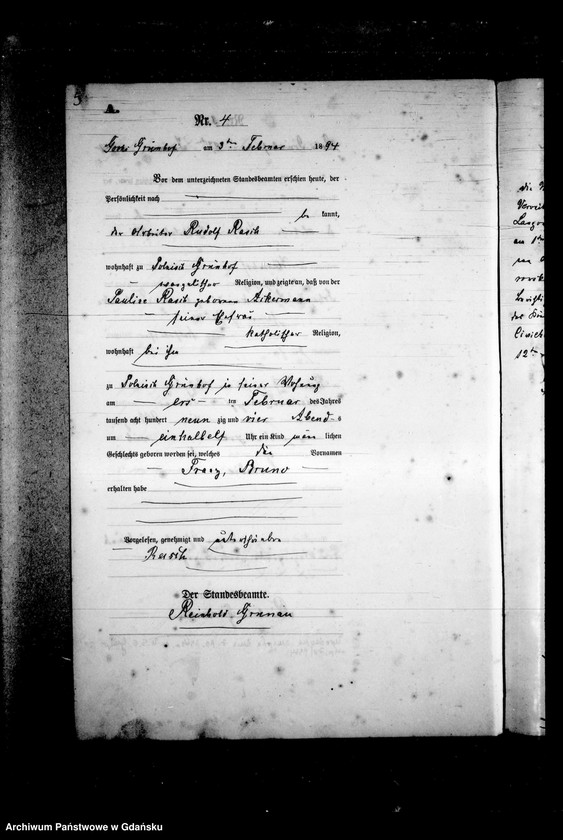 5
A.
Nr. 4
Grünhof am 3ten Februar 1894
Vor dem unterzeichneten Standesbeamten erschien heute, der
Persönlichkeit nach
be kannt,
der Arbeiter Rudolf Rasch
wohnhaft zu Polnisch Grünhof
evangelischer Religion, und zeigte an, daß von der
Pauline Rasch geborene Ackermann
seiner Ehefrau
katholischer Religion,
wohnhaft bei ihm
zu Polnisch Grünhof in seiner Wohnung
am ers ten Februar des Jahres
tausend acht hundert neun zig und vier Abends
um einhalb elf Uhr ein Kind männ lichen
Geschlechts geboren worden sei, welches die Vornamen
Franz, Bruno
erhalten habe
Vorgelesen, genehmigt und unterschrieben
Rasch
Der Standesbeamte.
Reinhold Grunau
die
an 1ten
12ten
Archiwum Państwowe w Gdańsku